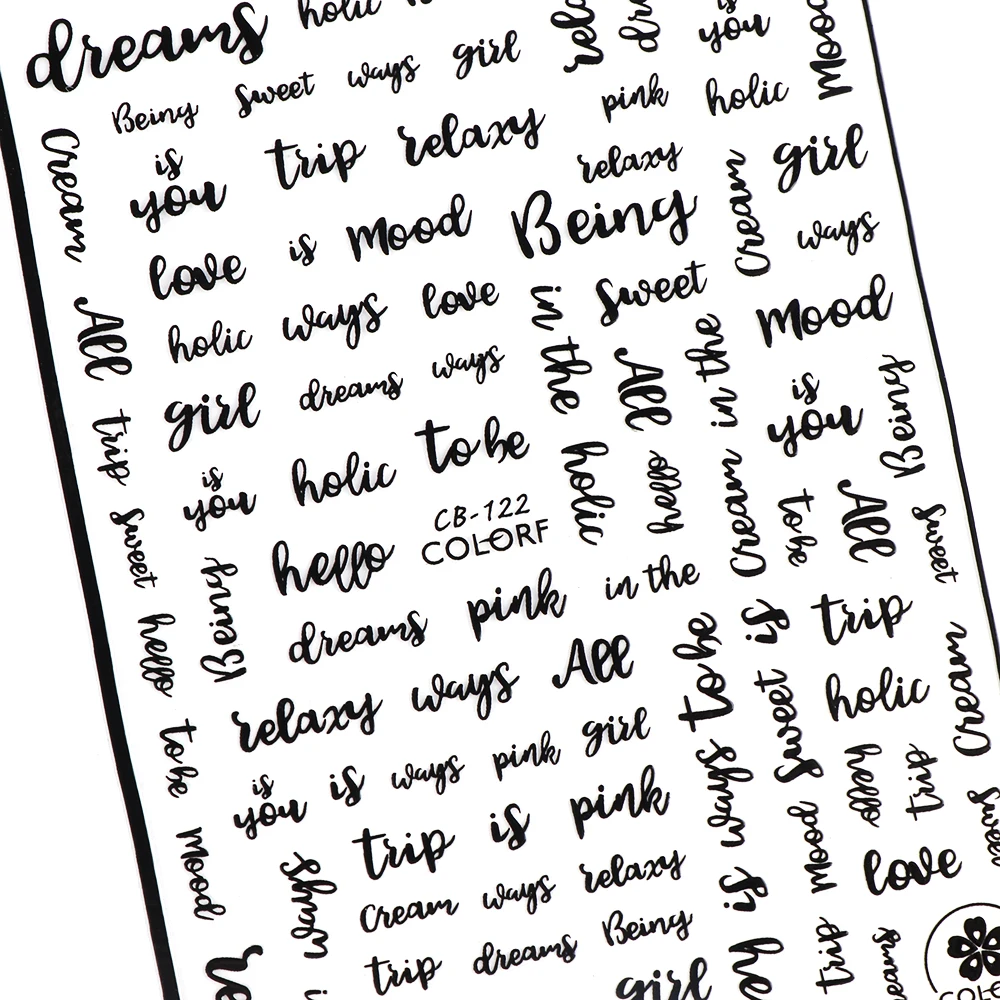 dreams holic
Being sweet ways girl
is you
pink holic Mood
Cream is you trip relaxy relaxy girl
love is Mood Being Cream ways
All holic ways love in the sweet in the Mood
girl dreams ways All is you Being
trip is you holic to be holic hello Cream to be All sweet
CB-122
COLORF
sweet Being hello
hello dreams pink in the is trip
relaxy ways All to be sweet holic Cream
to be is you is ways pink girl ways hello trip
Mood trip is pink is Mood love
ways Cream ways relaxy
trip dreams Being trip
girl